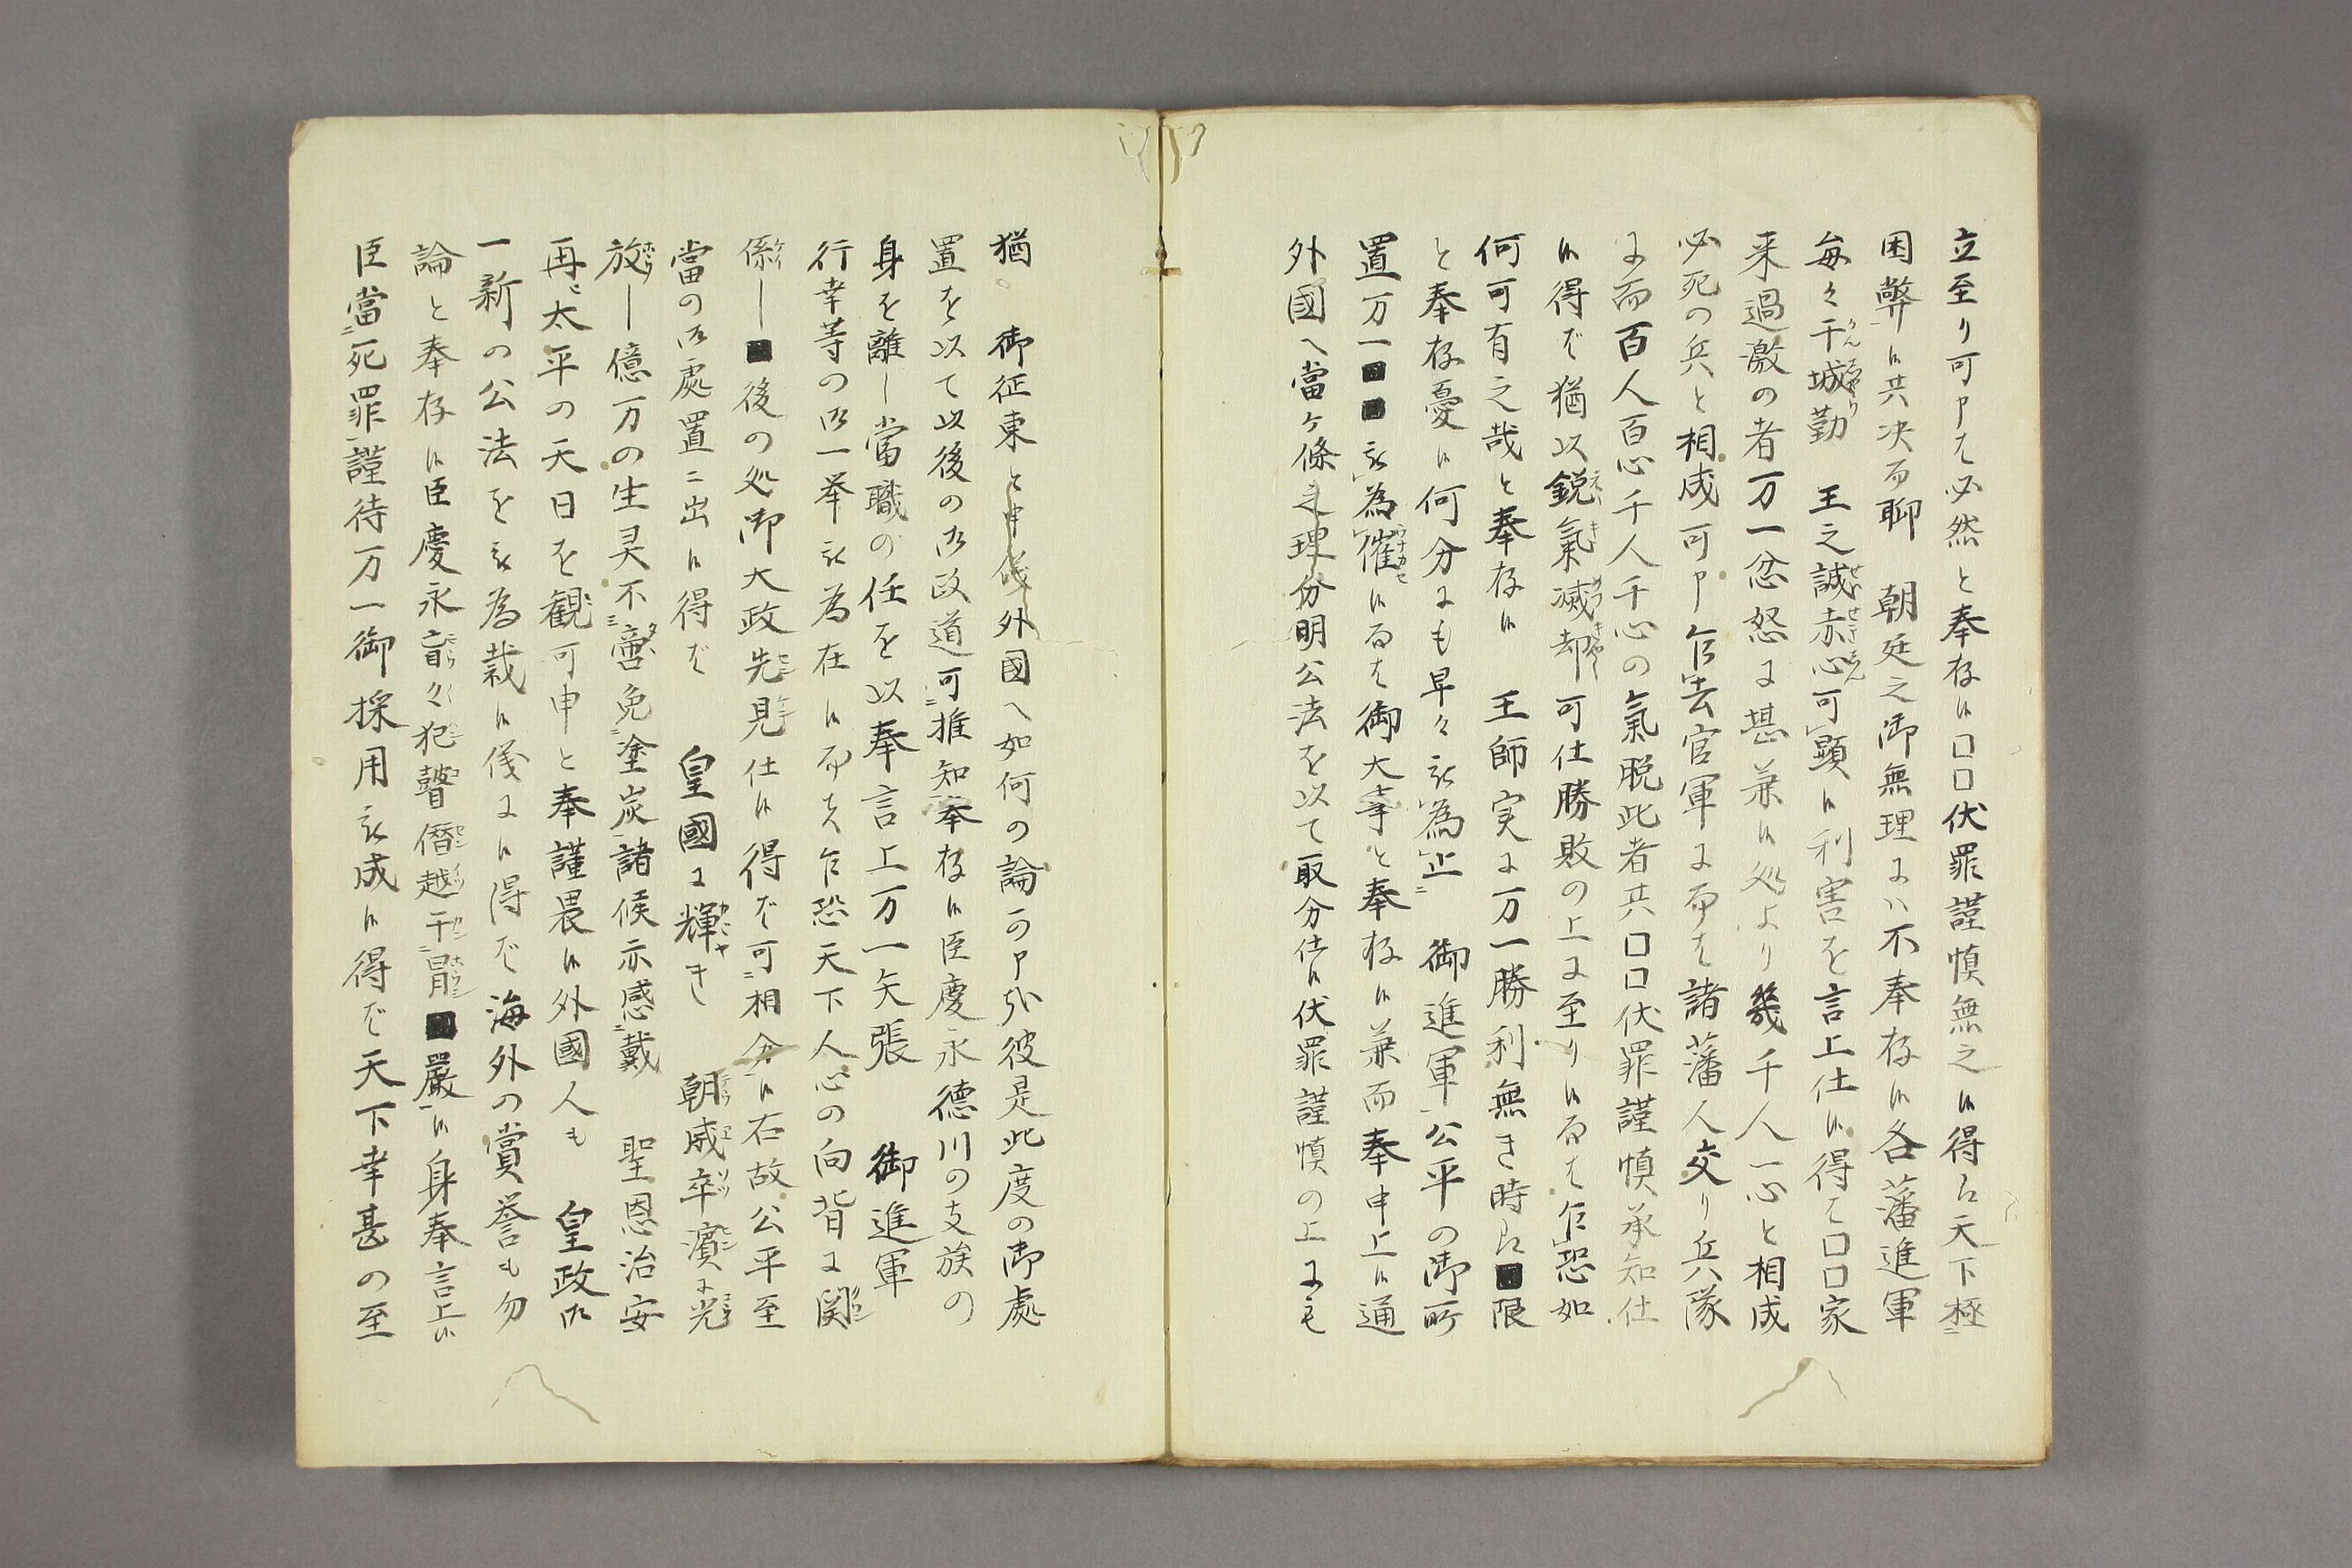 立至り可申ハ必然と奉存候□□伏罪謹慎無之候得ハ天下極
困弊候共决而聊　朝廷之御無理ニハ不奉存候各藩進軍
毎々干城勤　王之誠赤心可顕候利害を言上仕候得ハ□□家
来過激の者万一忿怒ニ堪兼候処より幾千人一心と相成
必死の兵と相成可申乍去官軍ニ而ハ諸藩人交り兵隊
ニ而百人百心千人千心の氣脱此者共□□伏罪謹慎承知仕
候得ども猶以鋭氣滅却可仕勝敗の上ニ至り候而ハ乍恐如
何可有之哉と奉存候　王師実ニ万一勝利無き時は■限
と奉存憂候何分ニも早々被為止　御進軍公平の御所
置万一■■被為催候而ハ御大幸と奉存候兼而奉申上候通
外國へ當ヶ條之理分明公法を以て取分仕候伏罪謹慎の上ニも
猶　御征東と申儀外國へ如何の論可申哉彼是此度の御處
置を以て以後の御政道可推知奉存候臣慶永德川の支族の
身を離し當職の任を以奉言上万一矢張　御進軍
行幸等の御一挙被為在候而ハ乍恐天下人心の向背ニ関
係し■後の処御大政先見仕候得ども可相分候右故公平至
當の御處置ニ出候得ば　皇國ニ輝き　朝威卒濱ニ光
放し億万の生灵不啻免塗炭諸候亦感戴　聖恩治安
再ビ太平の天日を観可申と奉謹畏候外國人も　皇政御
一新の公法を被為裁候儀ニ候得ば海外の賞誉も勿
論と奉存候臣慶永盲々犯瞽僭越干冒■嚴候身奉言上候
臣當死罪謹待万一御採用被成候得ば天下幸甚の至